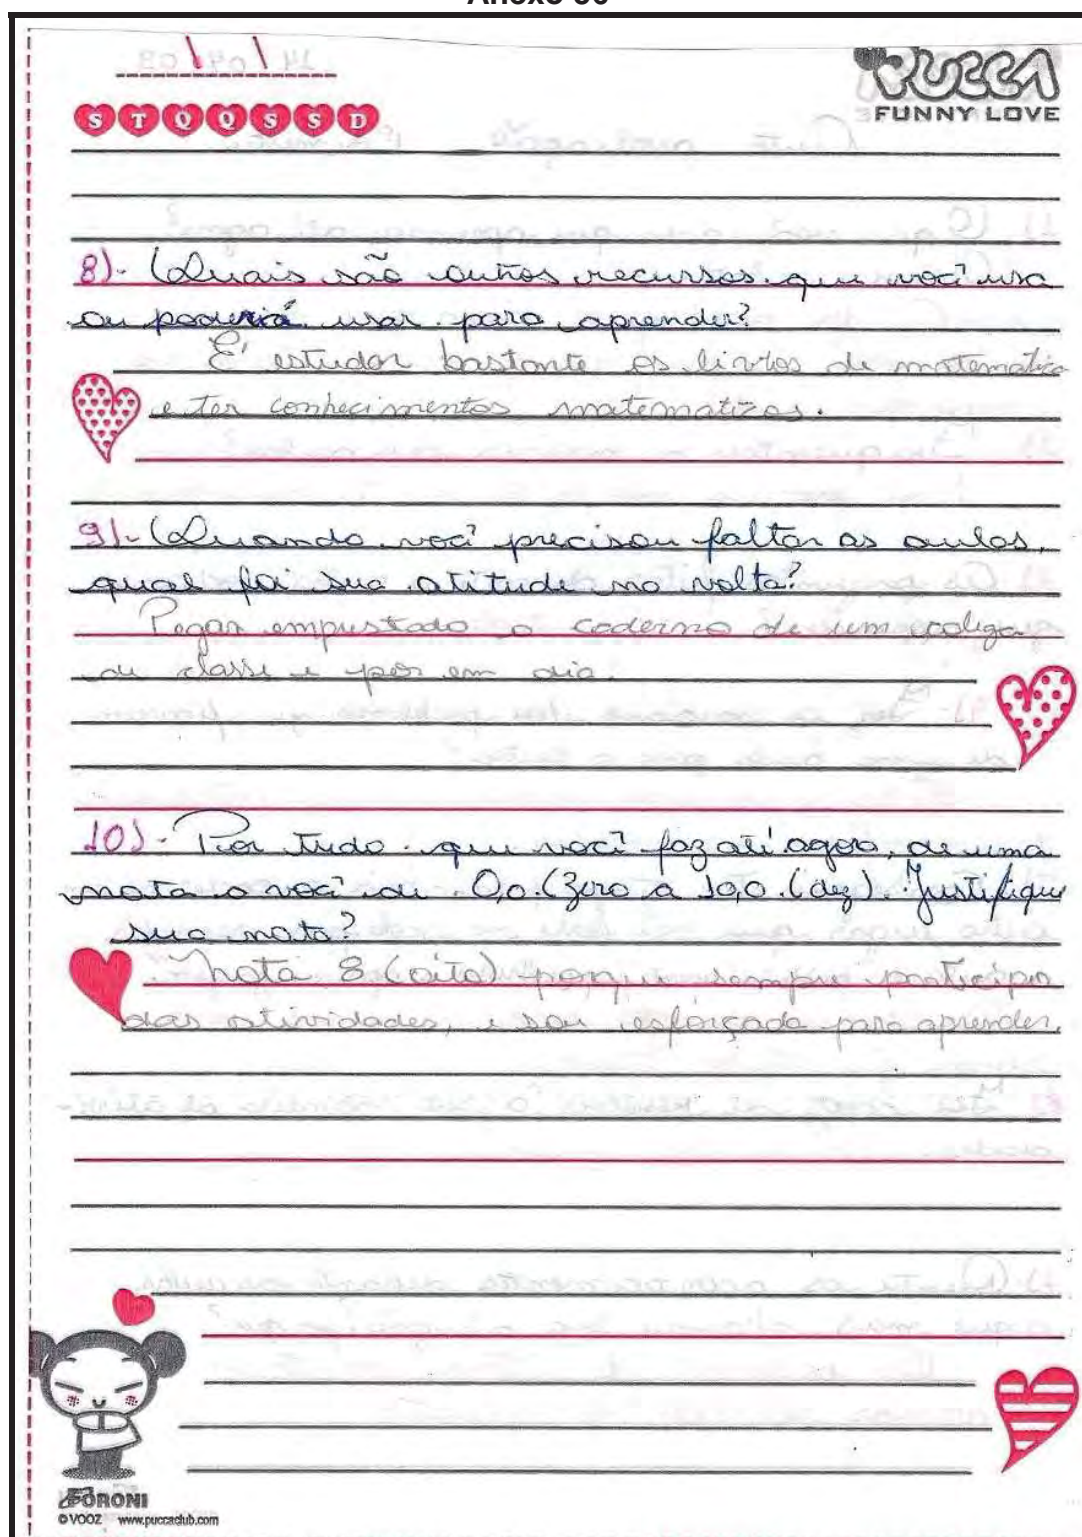 PUCCA
FUNNY LOVE
S T Q Q S S D
8)- Quais são outros recursos que você usa
ou poderiá usar para aprender?
É estudar bastante os livros de matematica
e ter conhecimentos matematicos.
9)- Quando você precisou faltar as aulas,
qual foi sua atitude na volta?
Pegar emprestado o caderno de um colega
de classe e por em dia.
10)- Por tudo que você faz até agora, de uma
nota a você de 0,0 (Zero a 10,0 (dez). Justifique
sua nota?
Nota 8 (oito) porque sempre participo
das atividades, e sou esforçada para aprender.
FORONI
© VOOZ www.puccaclub.com